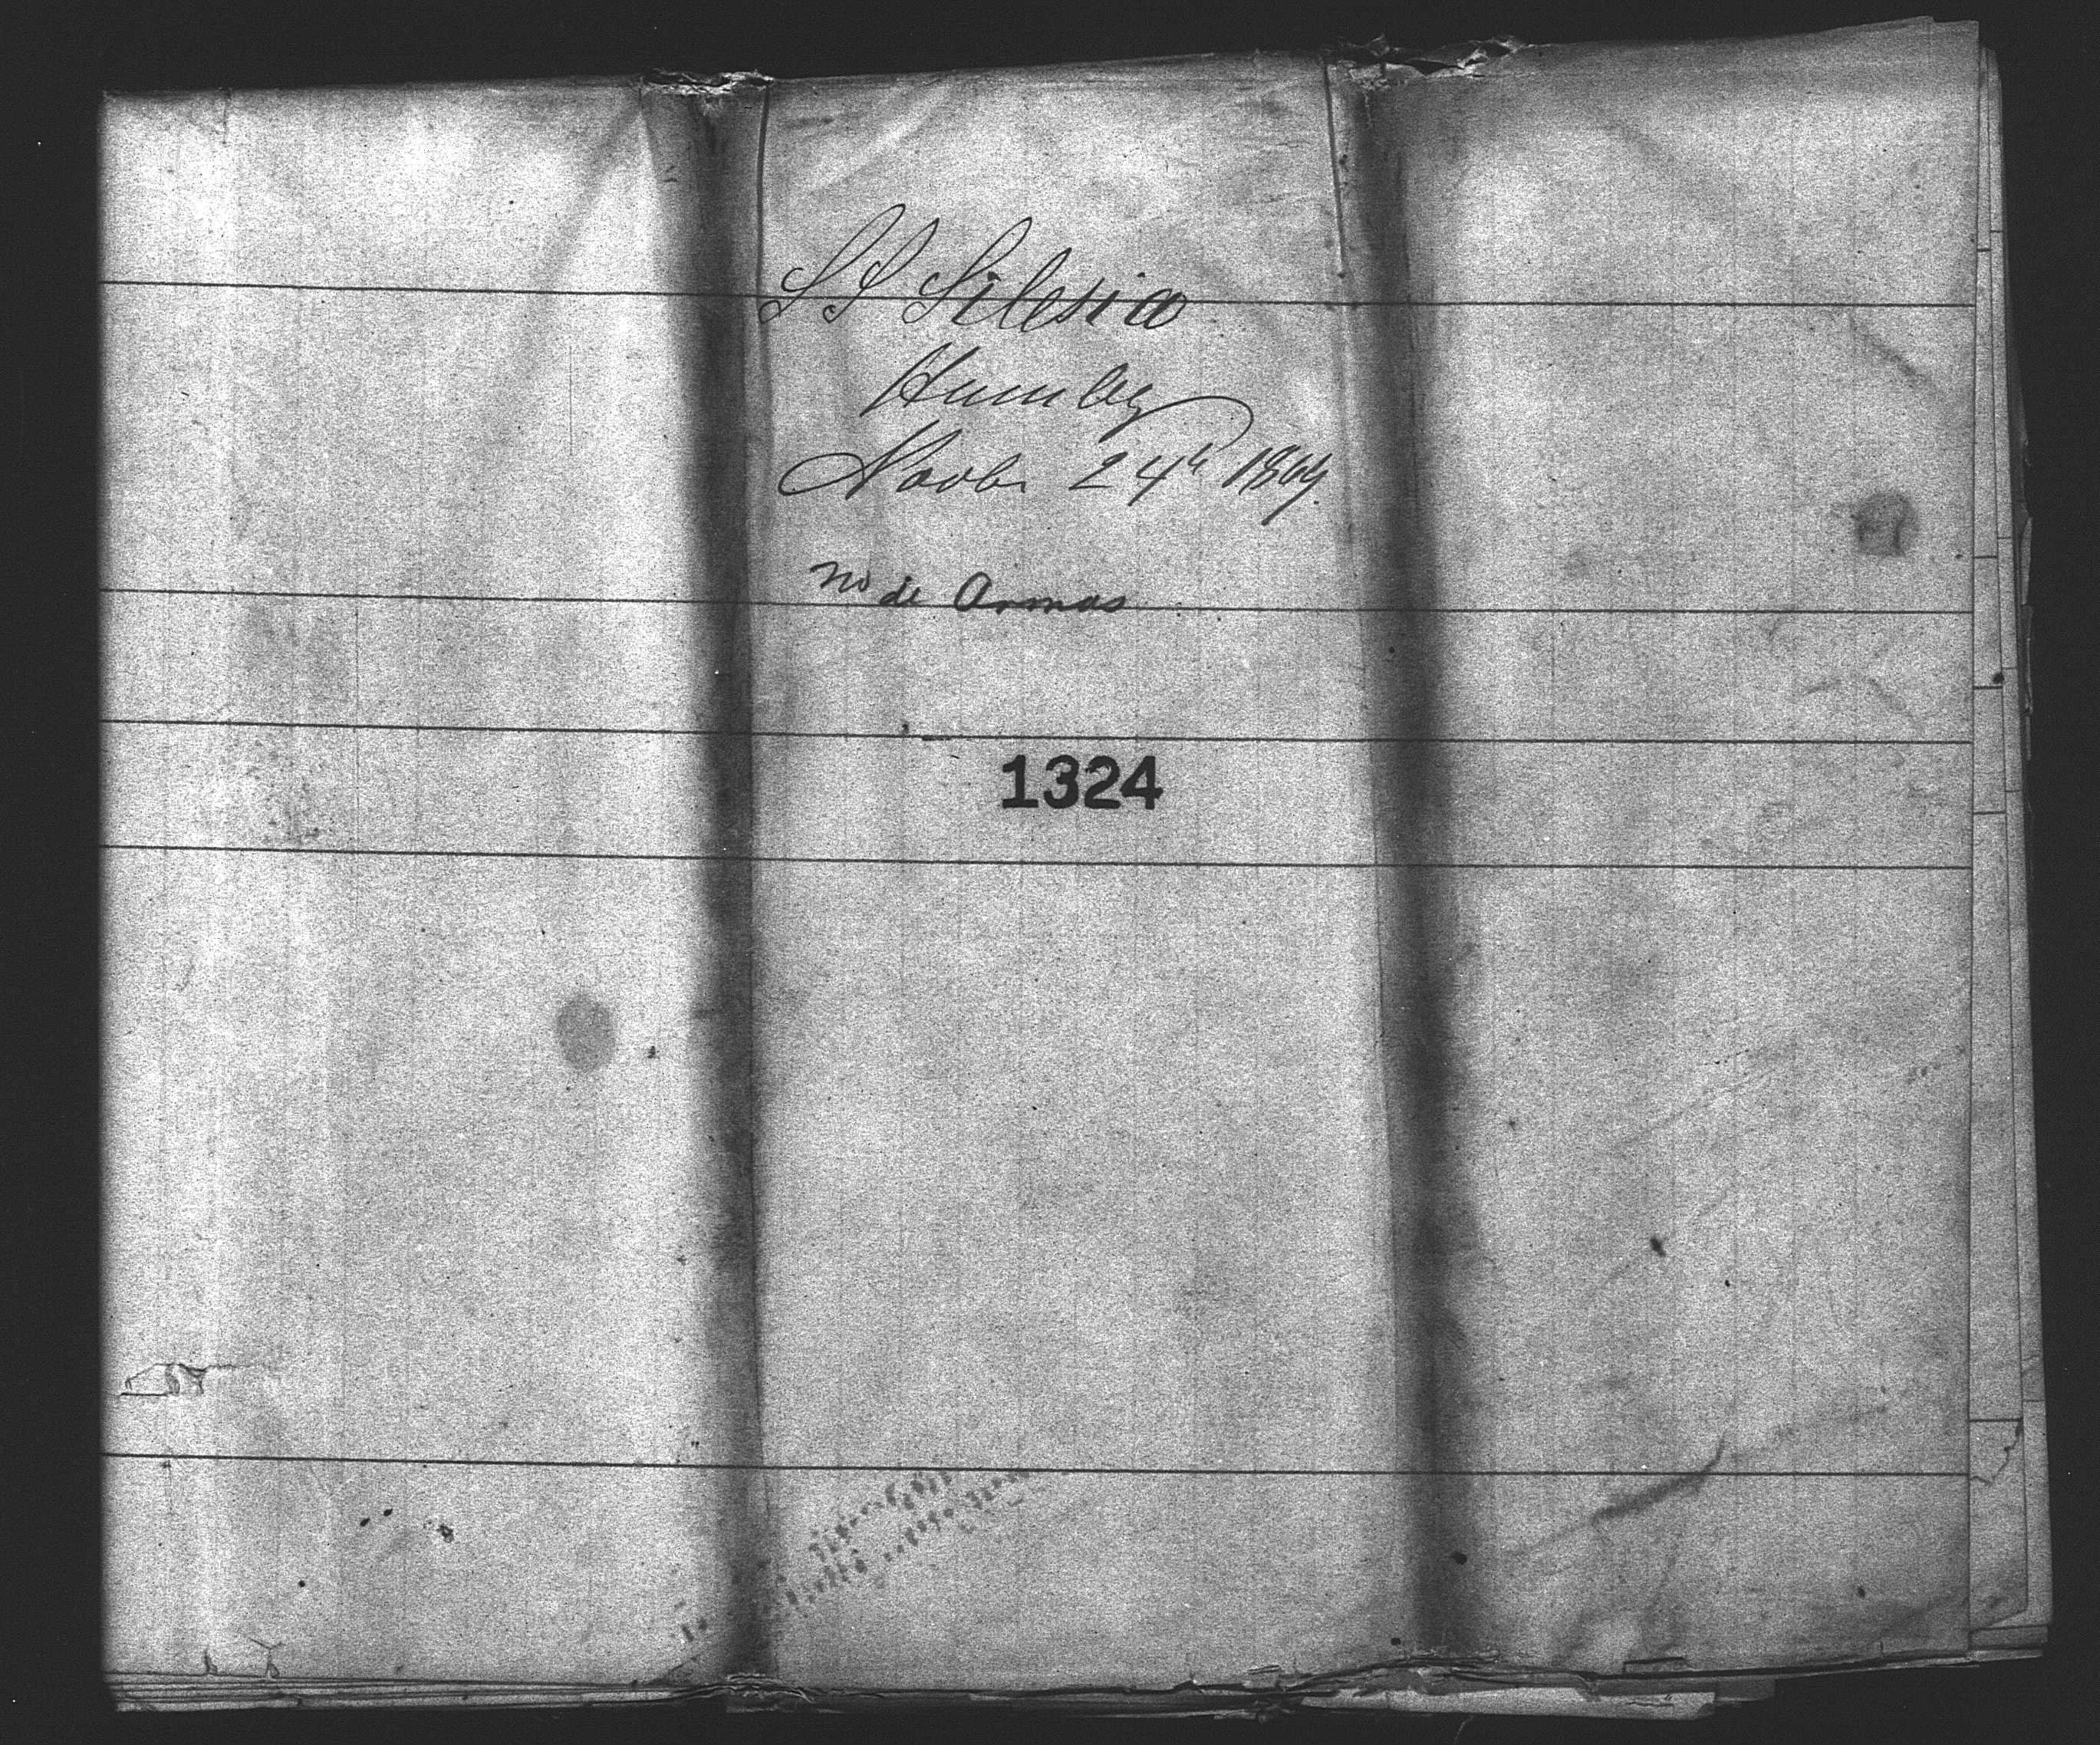 SS Silesia
Humbg
Novbr 24th 1869.
No de Armas
1324